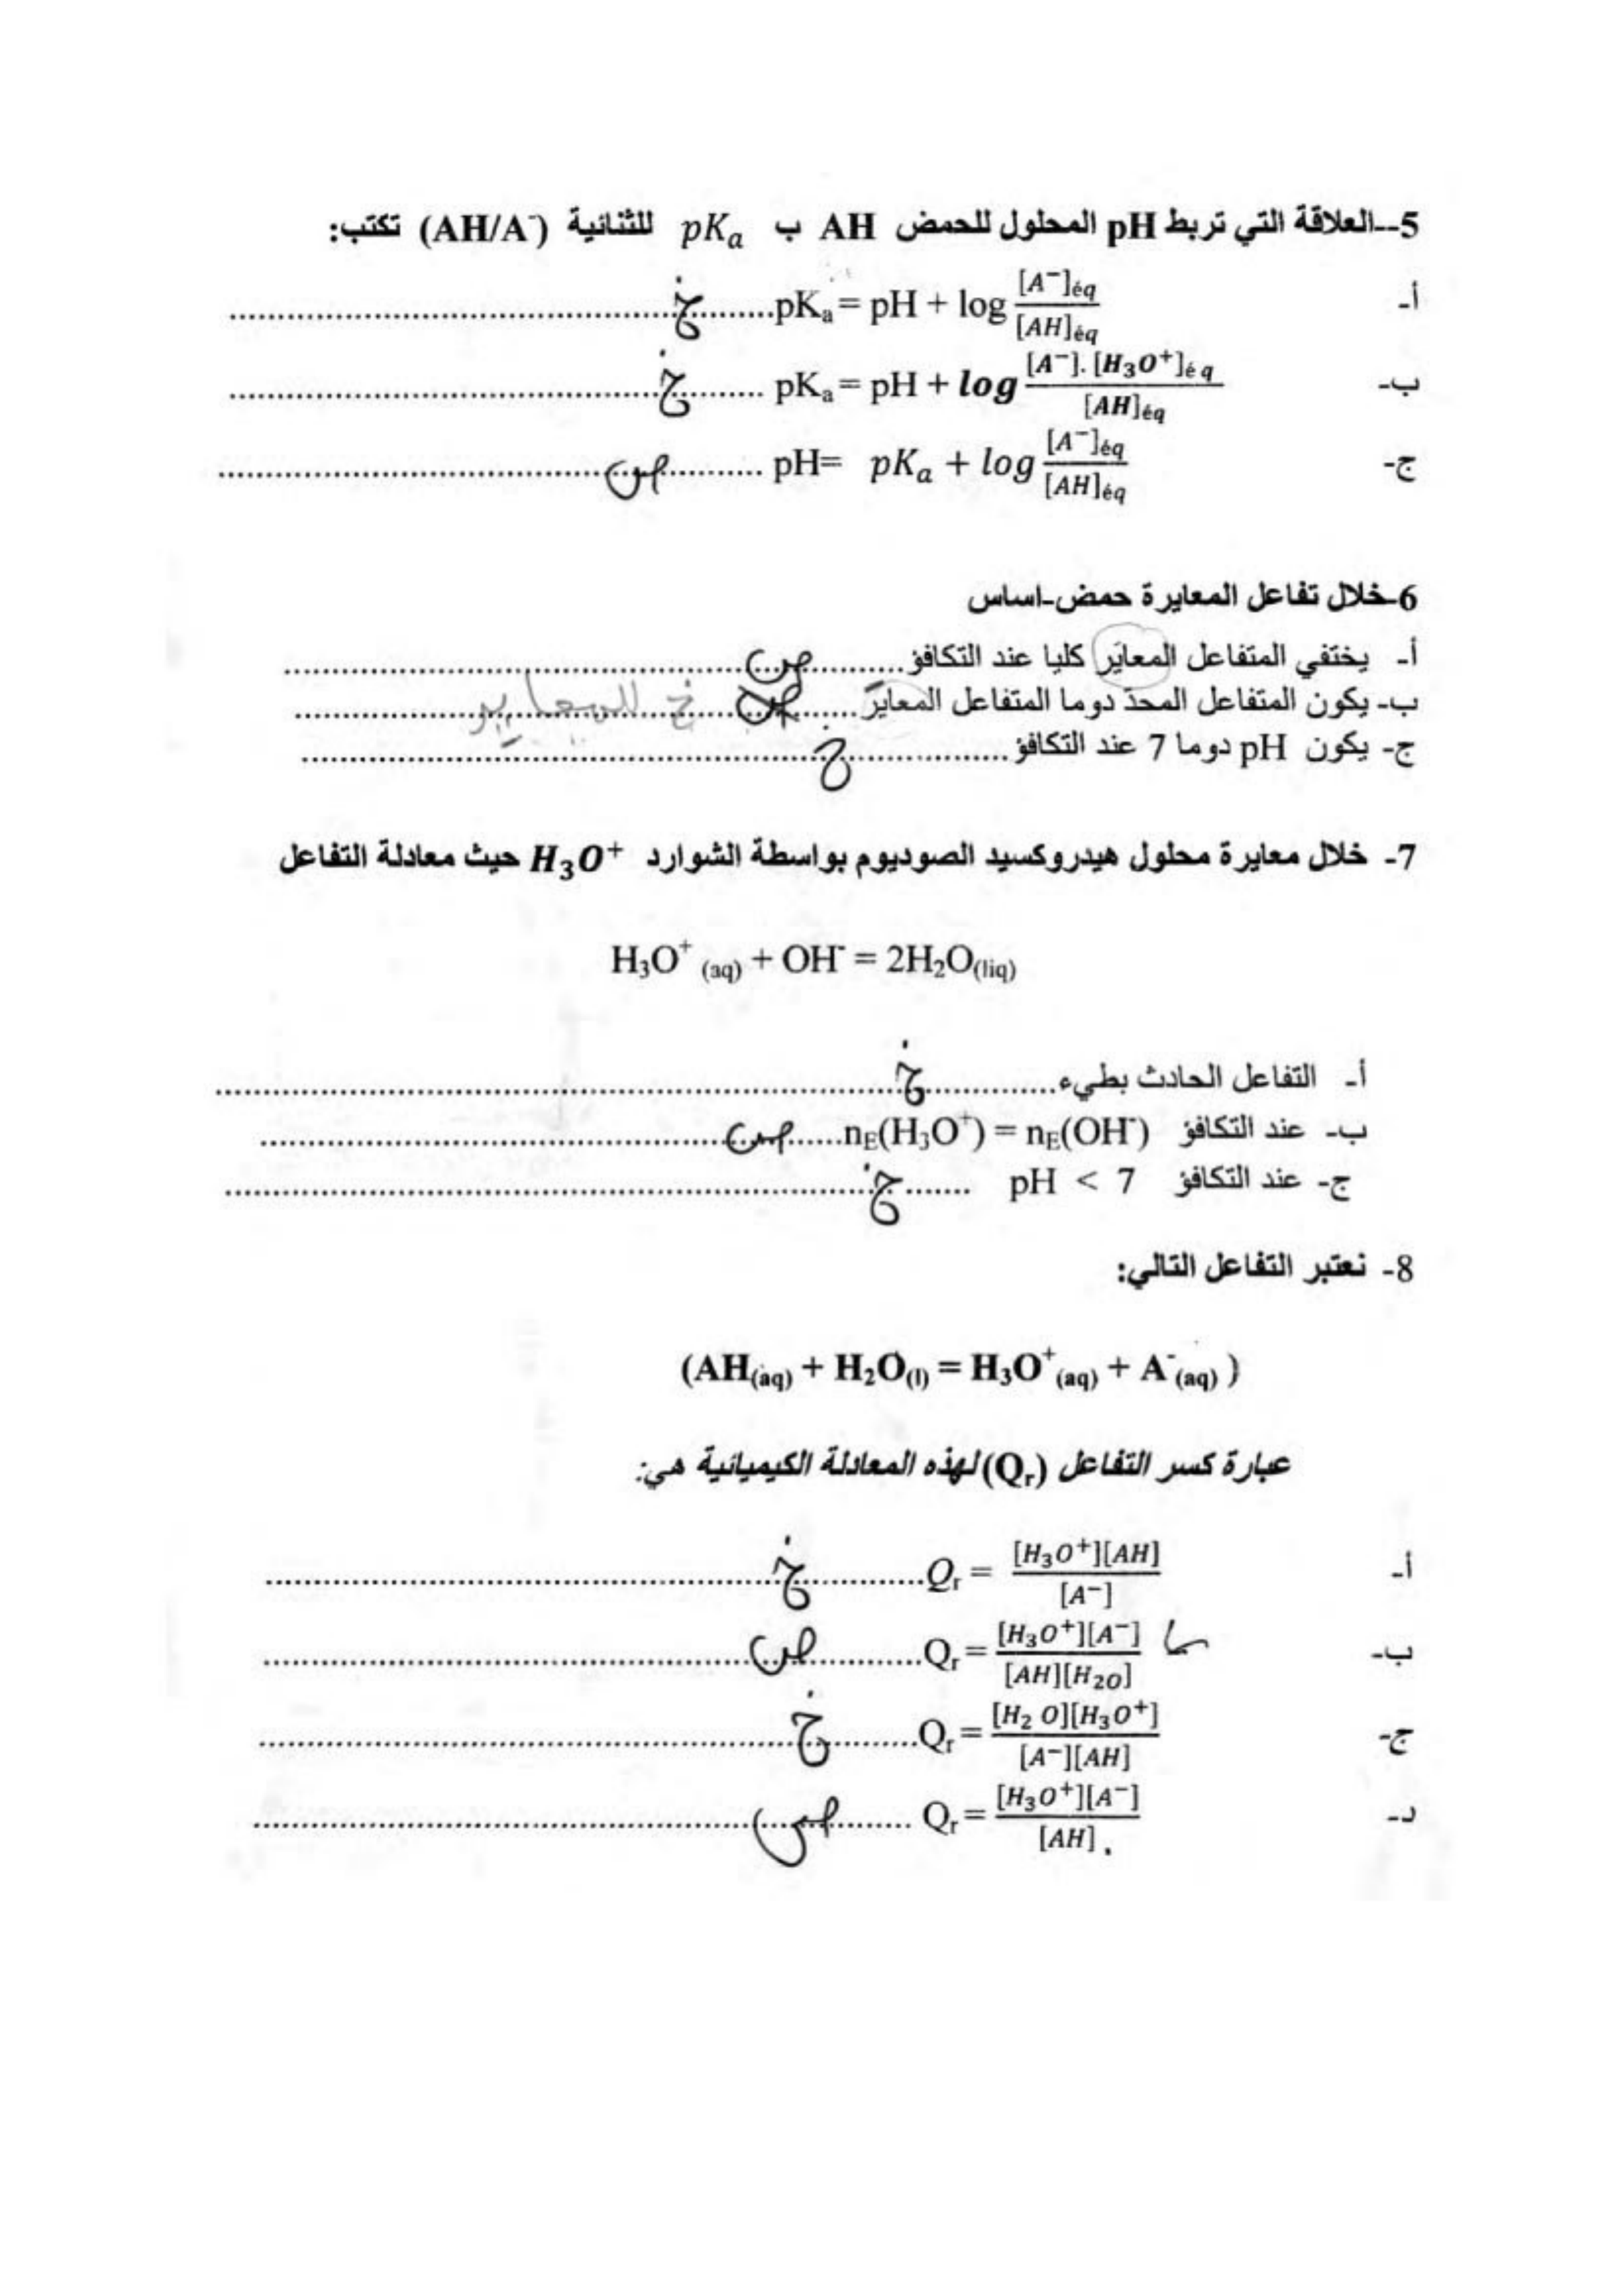 5--العلاقة التي تربط pH المحلول للحمض AH ب pKₐ للثنائية (AH/A⁻) تكتب:
أ- pKₐ = pH + log [A⁻]éq / [AH]éq ........ خ
ب- pKₐ = pH + log [A⁻]. [H₃O⁺]éq / [AH]éq ........ خ
ج- pH= pKₐ + log [A⁻]éq / [AH]éq ........ ص
6-خلال تفاعل المعايرة حمض-اساس
أ- يختفي المتفاعل المعايَر كليا عند التكافؤ ........ ص
ب- يكون المتفاعل المحدّ دوما المتفاعل المعايَر ........ ص خ للمعايِر
ج- يكون pH دوما 7 عند التكافؤ ........ خ
7- خلال معايرة محلول هيدروكسيد الصوديوم بواسطة الشوارد H₃O⁺ حيث معادلة التفاعل
H₃O⁺ (aq) + OH⁻ = 2H₂O(liq)
أ- التفاعل الحادث بطيء ........ خ
ب- عند التكافؤ nE(H₃O⁺) = nE(OH⁻) ........ ص
ج- عند التكافؤ pH < 7 ........ خ
8- نعتبر التفاعل التالي:
(AH(aq) + H₂O(l) = H₃O⁺(aq) + A⁻(aq) )
عبارة كسر التفاعل (Qr) لهذه المعادلة الكيميائية هي:
أ- Qr = [H₃O⁺][AH] / [A⁻] ........ خ
ب- Qr = [H₃O⁺][A⁻] / [AH][H₂O] ........ ص
ج- Qr = [H₂ O][H₃O⁺] / [A⁻][AH] ........ خ
د- Qr = [H₃O⁺][A⁻] / [AH] . ........ ص